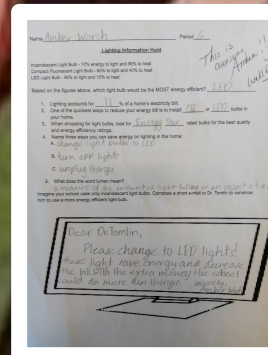 Name Amber Worch Period 6
This is awesome, Amber!!
Lighting Information Hunt
Incandescent Light Bulb – 10% energy to light and 90% to heat
Compact Fluorescent Light Bulb – 60% to light and 40% to heat
LED Light Bulb – 90% to light and 10% to heat
Based on the figures above, which light bulb would be the MOST energy efficient? LED
1. Lighting accounts for 11 % of a home's electricity bill.
2. One of the quickest ways to reduce your energy bill is to install or LED bulbs in
your home.
3. When shopping for light bulbs, look for Energy Star rated bulbs for the best quality
and energy efficiency ratings.
4. Name three ways you can save energy on lighting in the home:
A. change light bulbs to LED
B. turn off lights
C. unplug things
5. What does the word lumen mean?
a measure of the amount of light on an object
Imagine your school uses only incandescent light bulbs. Compose a short e-mail to Dr. Tomlin to convince
him to use a more energy efficient light bulb.
Dear Dr. Tomlin,
Please change to LED lights!
these light save energy and decrease
the bill with the extra money the school
could do more fun things.